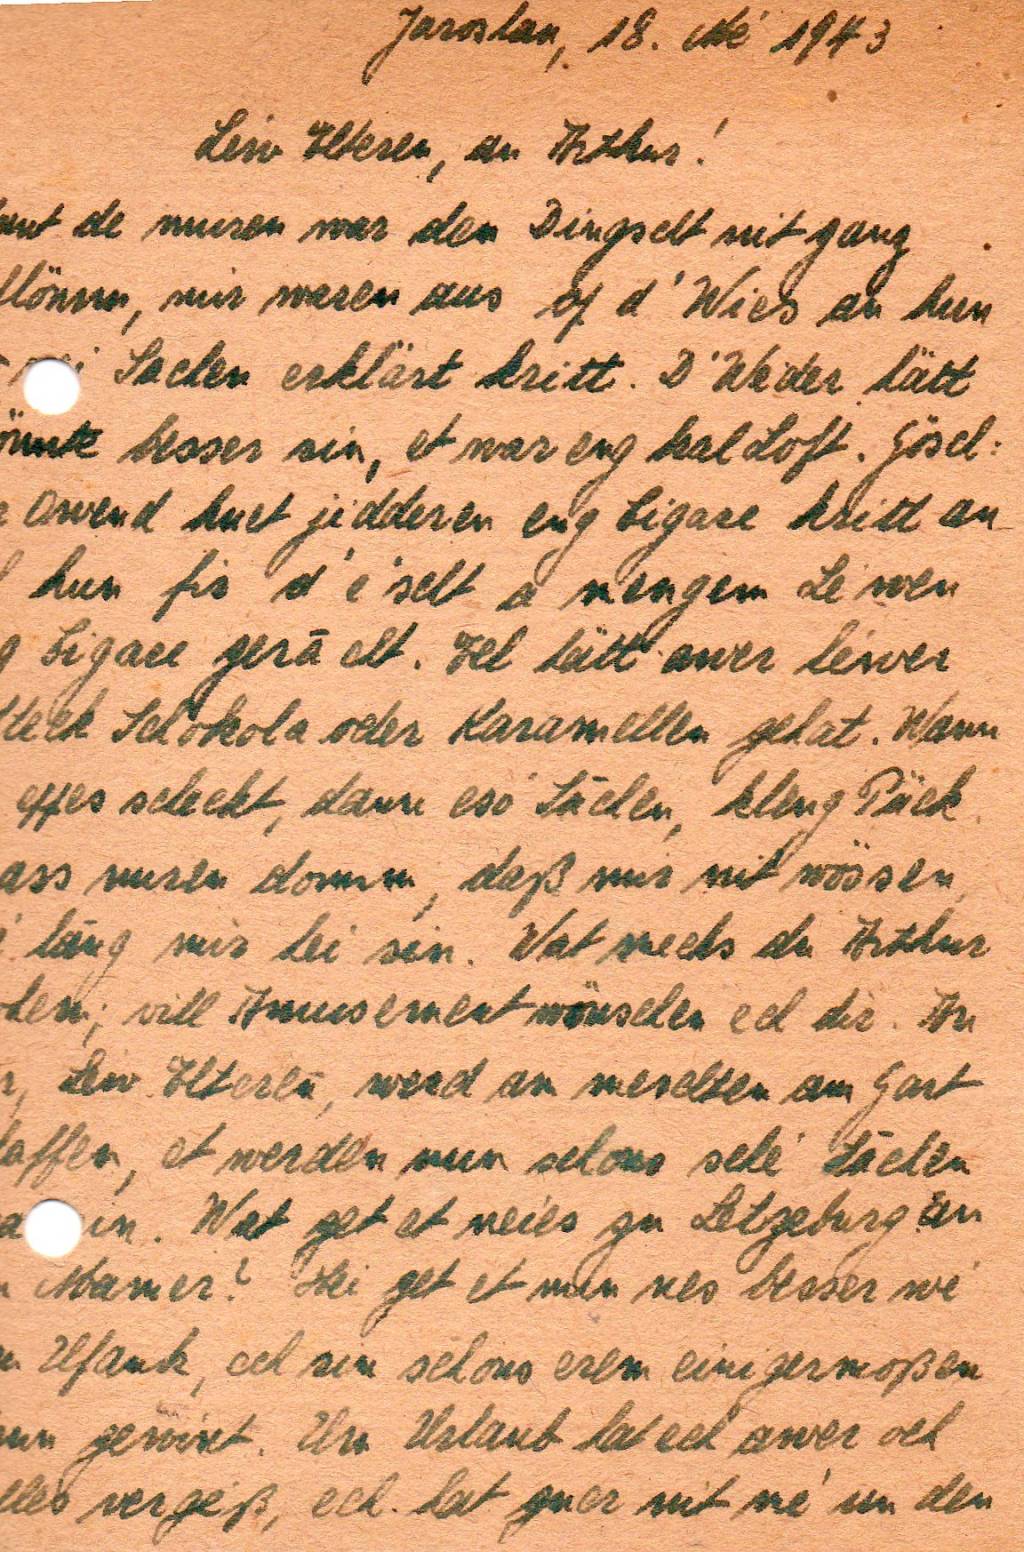 Jaroslau, 18. Mé 1943
Leiw Elteren, an Arthur!
de muren war den Dingscht nit ganz
mir waren aus of d'Wies an hun
Sachen erklärt kritt. D'Wieder hätt
besser sin, et war eng kal Loft. Gösch:
Owend huet jidderen eng Zigare kritt an
hun fir d'éischt a mengem Léwen
Zigare gerächt. Ech hätt awer léwer
Schokola oder Karamellen gehat. Wann
effes scheckt, dann esó Sächen, kleng Päck
ass nuren domm, daß mir nit wössen,
läng mir hei sin. Wat mechs du Arthur
vill Amusement wönschen ech dir. An
Leiw Elteren, werd am meschten am Gart
et werden nun schons sché Sächen
sin. Wat get et neies zu Letzeburg an
Mamer? Hei get et mın nes besser wé
Ufank, ech sin schons erem einigermoßen
gewint. Um Urlaub hat ech awer och
alles vergeß, ech hat guer nit mé un den